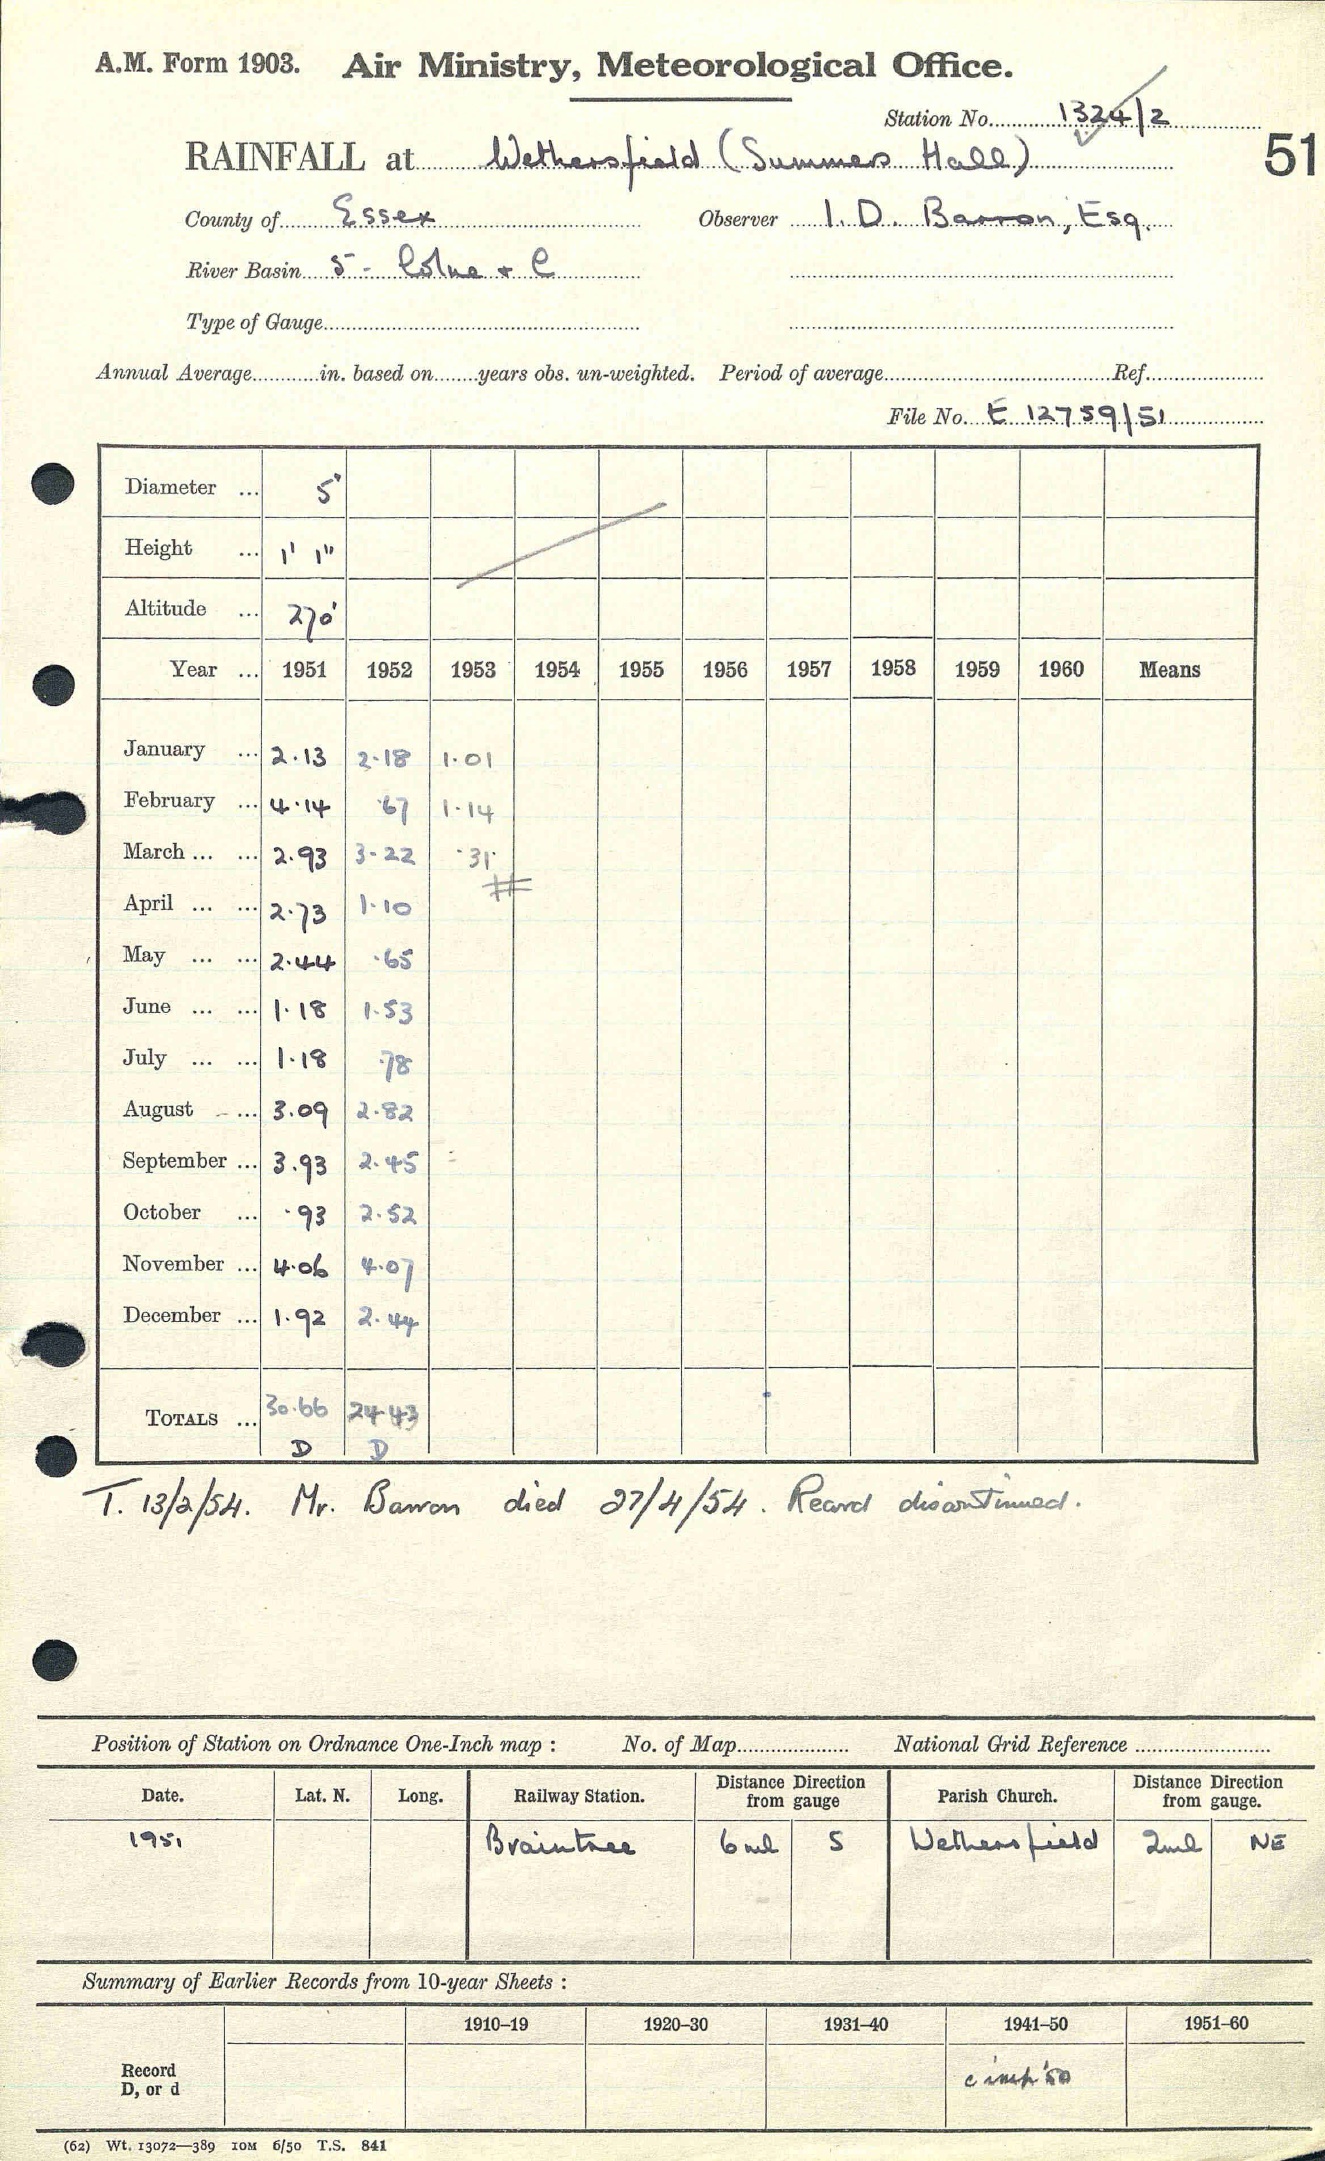 A.M. Form 1903. Air Ministry, Meteorological Office.
Station No. 1324/2
RAINFALL at Wethersfield (Summers Hall)
51
County of Essex Observer I. D. Barron, Esq.
River Basin 5 - Colne + C
Type of Gauge
Annual Average in. based on years obs. un-weighted. Period of average Ref.
File No. E 12759/51
Diameter ... 5"
Height ... 1' 1"
Altitude ... 270'
Year ... 1951 1952 1953 1954 1955 1956 1957 1958 1959 1960 Means
January ... 2.13 2.18 1.01
February ... 4.14 .67 1.14
March ... ... 2.93 3.22 .31
April ... ... 2.73 1.10
May ... ... 2.44 .65
June ... ... 1.18 1.53
July ... ... 1.18 .78
August ... 3.09 2.82
September ... 3.93 2.45
October ... .93 2.52
November ... 4.06 4.07
December ... 1.92 2.44
TOTALS ... 30.66 24.43
D D
T. 13/2/54. Mr. Barron died 27/4/54. Record discontinued.
Position of Station on Ordnance One-Inch map : No. of Map National Grid Reference
Date. Lat. N. Long. Railway Station. Distance Direction from gauge Parish Church. Distance Direction from gauge.
1951 Braintree 6 ml S Wethersfield 2ml NE
Summary of Earlier Records from 10-year Sheets :
1910–19 1920–30 1931–40 1941–50 1951–60
Record D, or d
(62) Wt. 13072—389 10M 6/50 T.S. 841